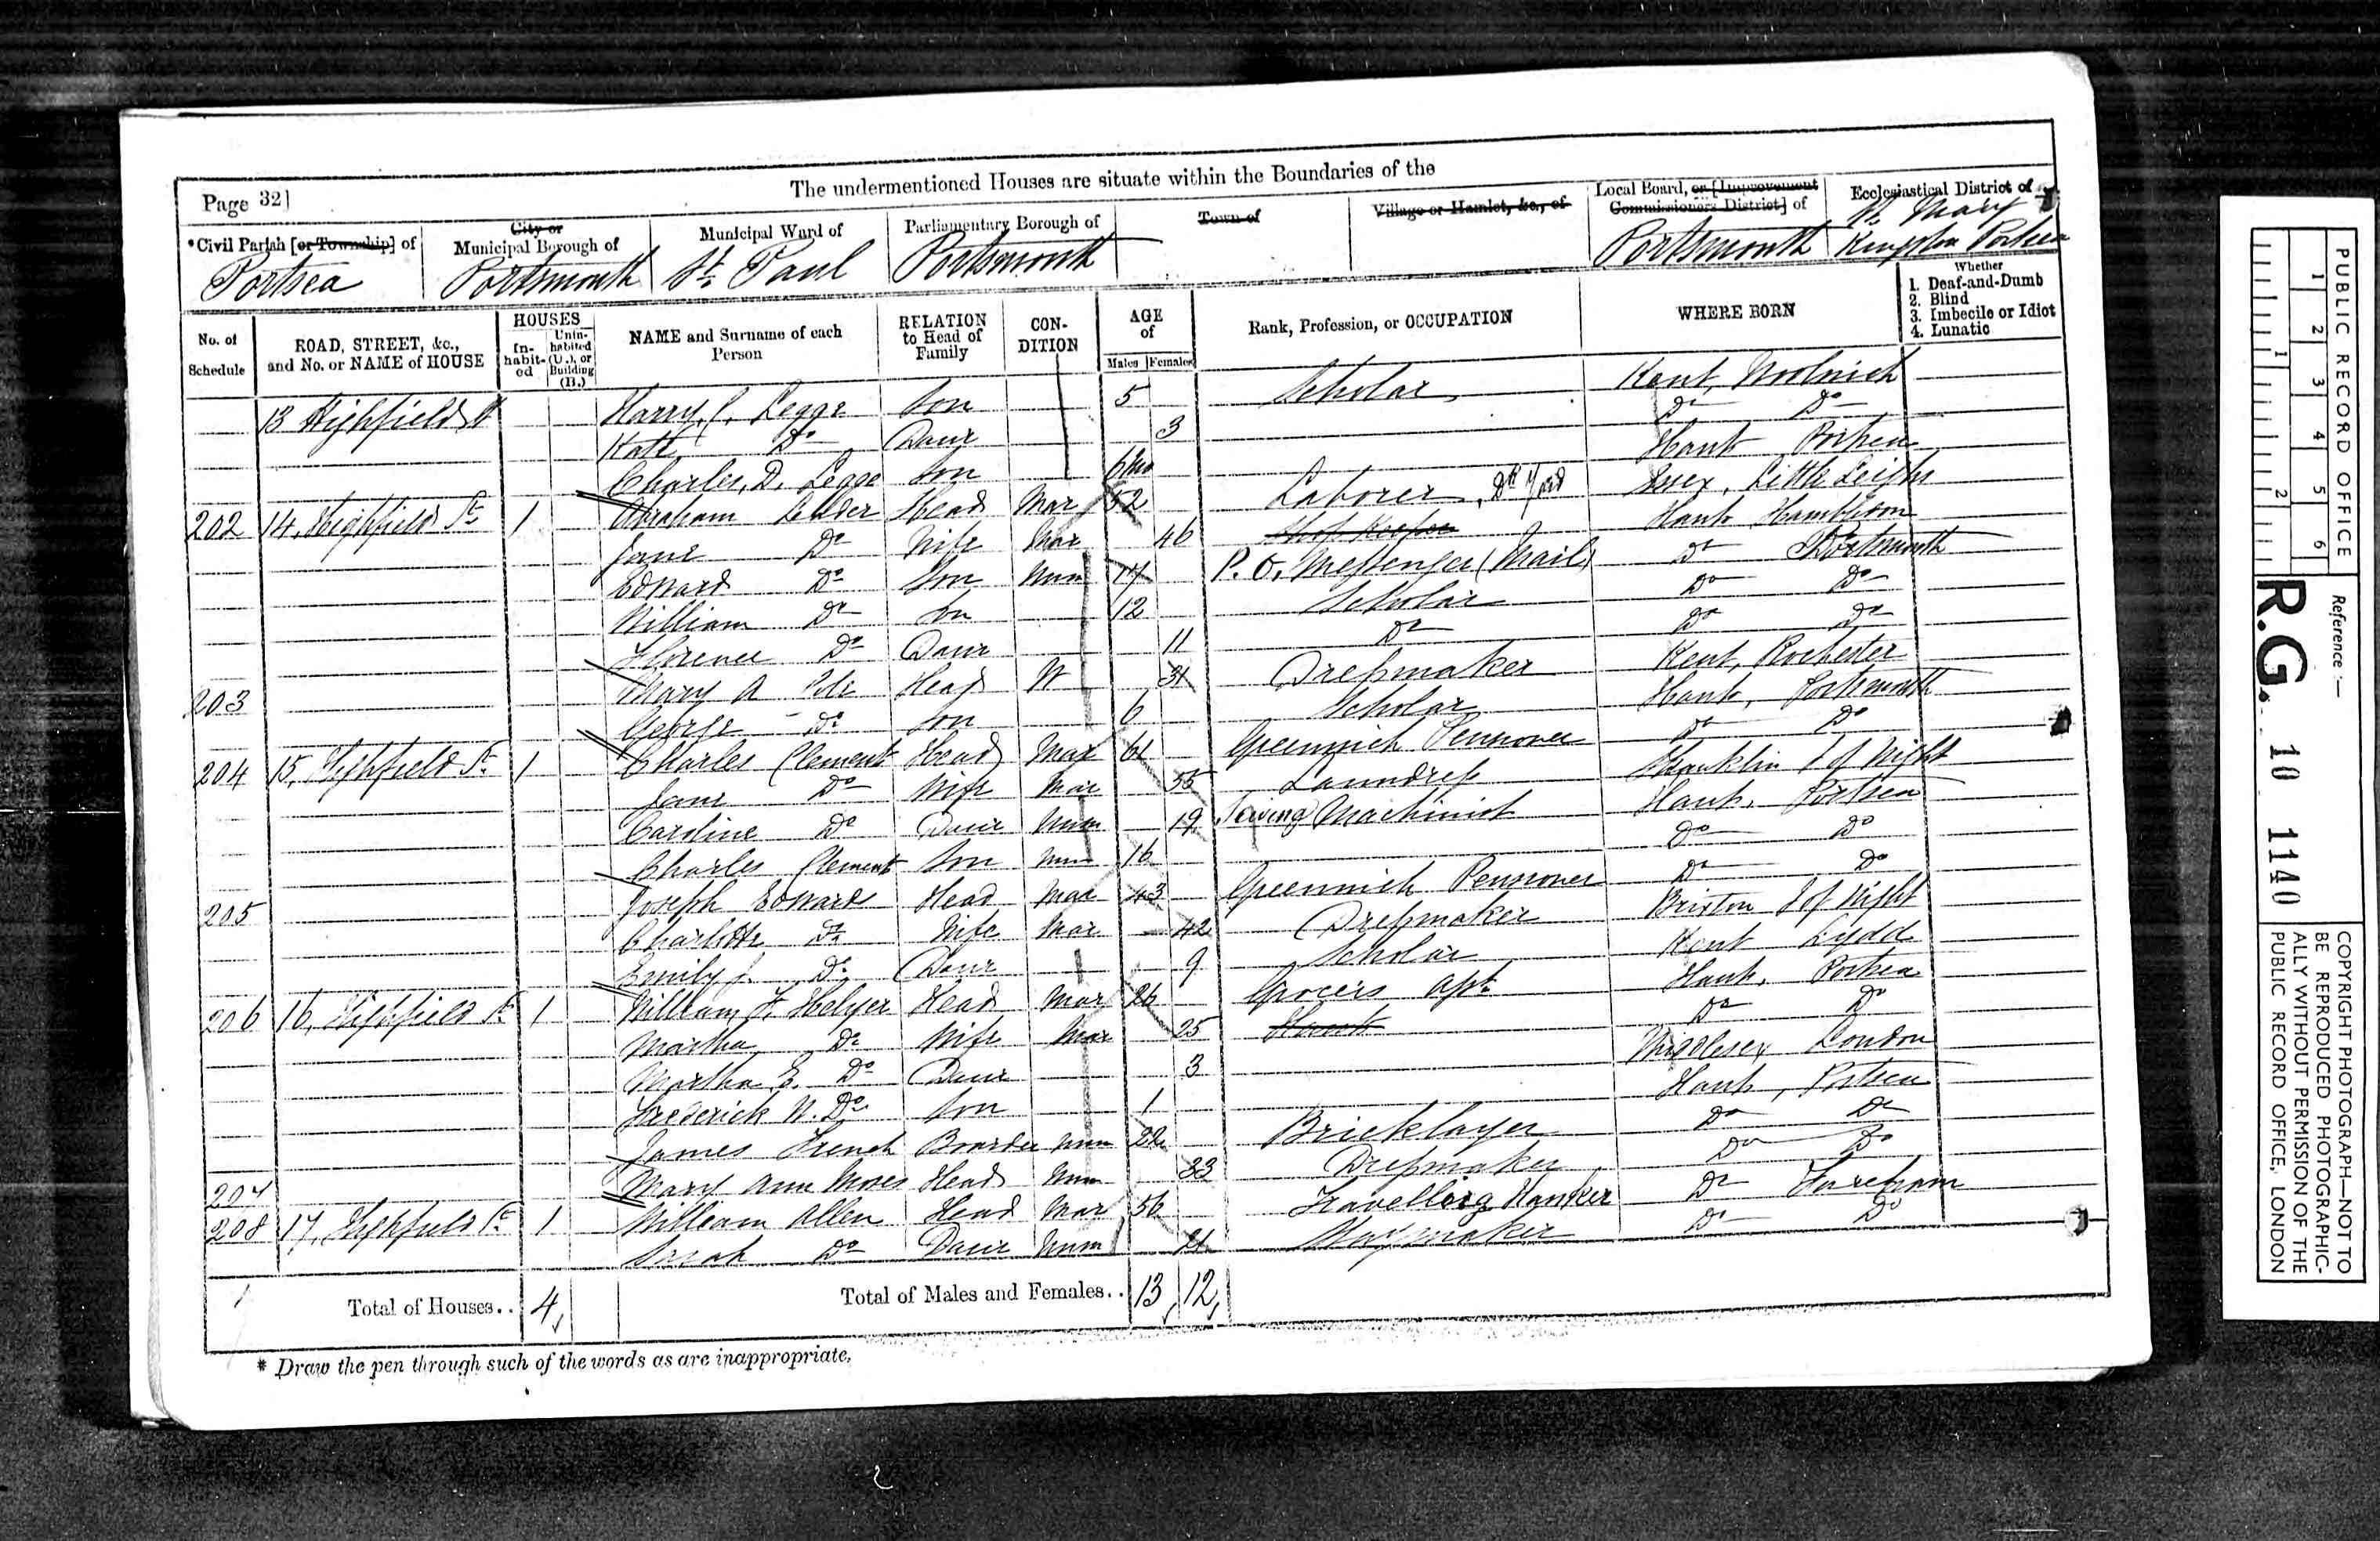 The undermentioned Houses are situate within the Boundaries of the
Page 32]
*Civil Parish [or Township] of
Portsea
City or Municipal Borough of
Portsmouth
Municipal Ward of
St. Paul
Parliamentary Borough of
Portsmouth
Town of
Village or Hamlet, &c., of
Local Board, or [Improvement Commissioners District] of
Portsmouth
Ecclesiastical District of
St. Mary
Kingston Portsea
No. of Schedule
ROAD, STREET, &c., and No. or NAME of HOUSE
HOUSES
In-habit-ed
Unin-habited (U.), or Building (B.)
NAME and Surname of each Person
RELATION to Head of Family
CON-DITION
AGE of
Males Females
Rank, Profession, or OCCUPATION
WHERE BORN
Whether
1. Deaf-and-Dumb
2. Blind
3. Imbecile or Idiot
4. Lunatic
13 Highfield St Harry C. Legge Son 5 Scholar Kent, Woolwich
Kate Do Daur 3 Do Do
Charles, D. Legge Son 6 mo Hants Portsea
202 14, Highfield St 1 Abraham Head Mar 52 Laborer, Dk Yard Essex, Little Leighs
Jane Do Wife Mar 46 Shop Keeper Hants Hambledon
Edward Do Son Unm 17 P. O. Messenger (Mail) Do Portsmouth
William Do Son 12 Scholar Do Do
Florence Do Daur 11 Do Do Do
203 Mary A Head W 31 Dressmaker Kent, Rochester
George Do Son 6 Scholar Hants, Portsmouth
204 15, Highfield St 1 Charles Clement Head Mar 61 Greenwich Pensioner Do Do
Jane Do Wife Mar 55 Laundress Shanklin I of Wight
Caroline Do Daur Unm 19 Sewing Machinist Hants, Portsea
Charles Clement Son Unm 16 Do Do
205 Joseph Edwards Head Mar 43 Greenwich Pensioner Do Do
Charlotte Do Wife Mar 42 Dressmaker Briston I of Wight
Emily J. Do Daur 9 Scholar Kent Lydd
206 16, Highfield St 1 William F. Helyer Head Mar 26 Grocers apt Hants, Portsea
Martha Do Wife Mar 25 Do Do
Martha E. Do Daur 3 Middlesex London
Frederick W. Do Son 1 Hants, Portsea
James French Boarder Unm 22 Bricklayer Do Do
207 Mary Ann Moses Head Unm 33 Dressmaker Do Do
208 17, Highfield St 1 William Allen Head Mar 56 Travelling Hawker Do Fareham
Sarah Do Daur Unm 21 Do Do
Total of Houses.. 4
Total of Males and Females.. 13 12
* Draw the pen through such of the words as are inappropriate.
PUBLIC RECORD OFFICE
1 2 3 4 5 6
1 2
Reference:—
R.G. 10 1140
COPYRIGHT PHOTOGRAPH—NOT TO BE REPRODUCED PHOTOGRAPHIC-ALLY WITHOUT PERMISSION OF THE PUBLIC RECORD OFFICE, LONDON